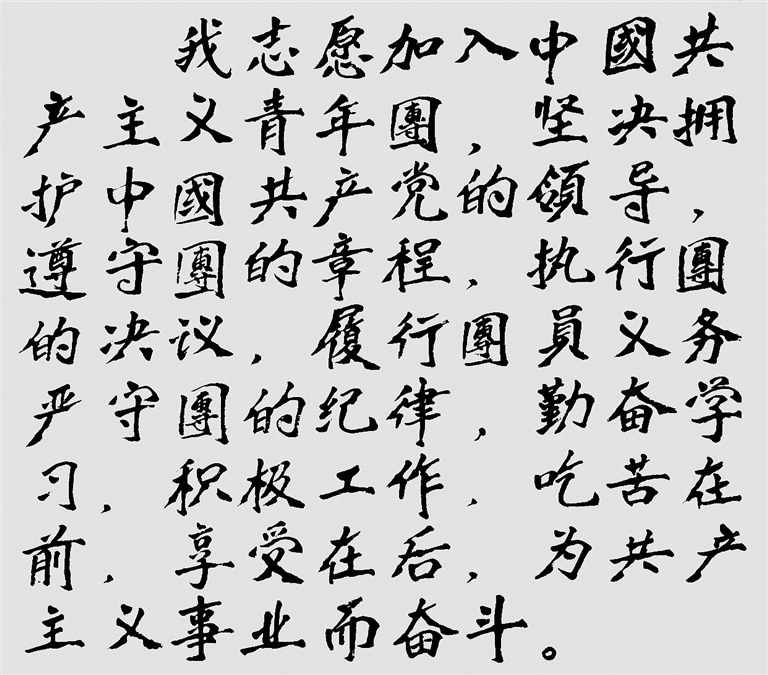 我志愿加入中國共
产主义青年團，坚决拥
护中國共产党的領导，
遵守團的章程，执行團
的决议，履行團員义务
严守團的纪律，勤奋学
习，积极工作，吃苦在
前，享受在后，为共产
主义事业而奋斗。